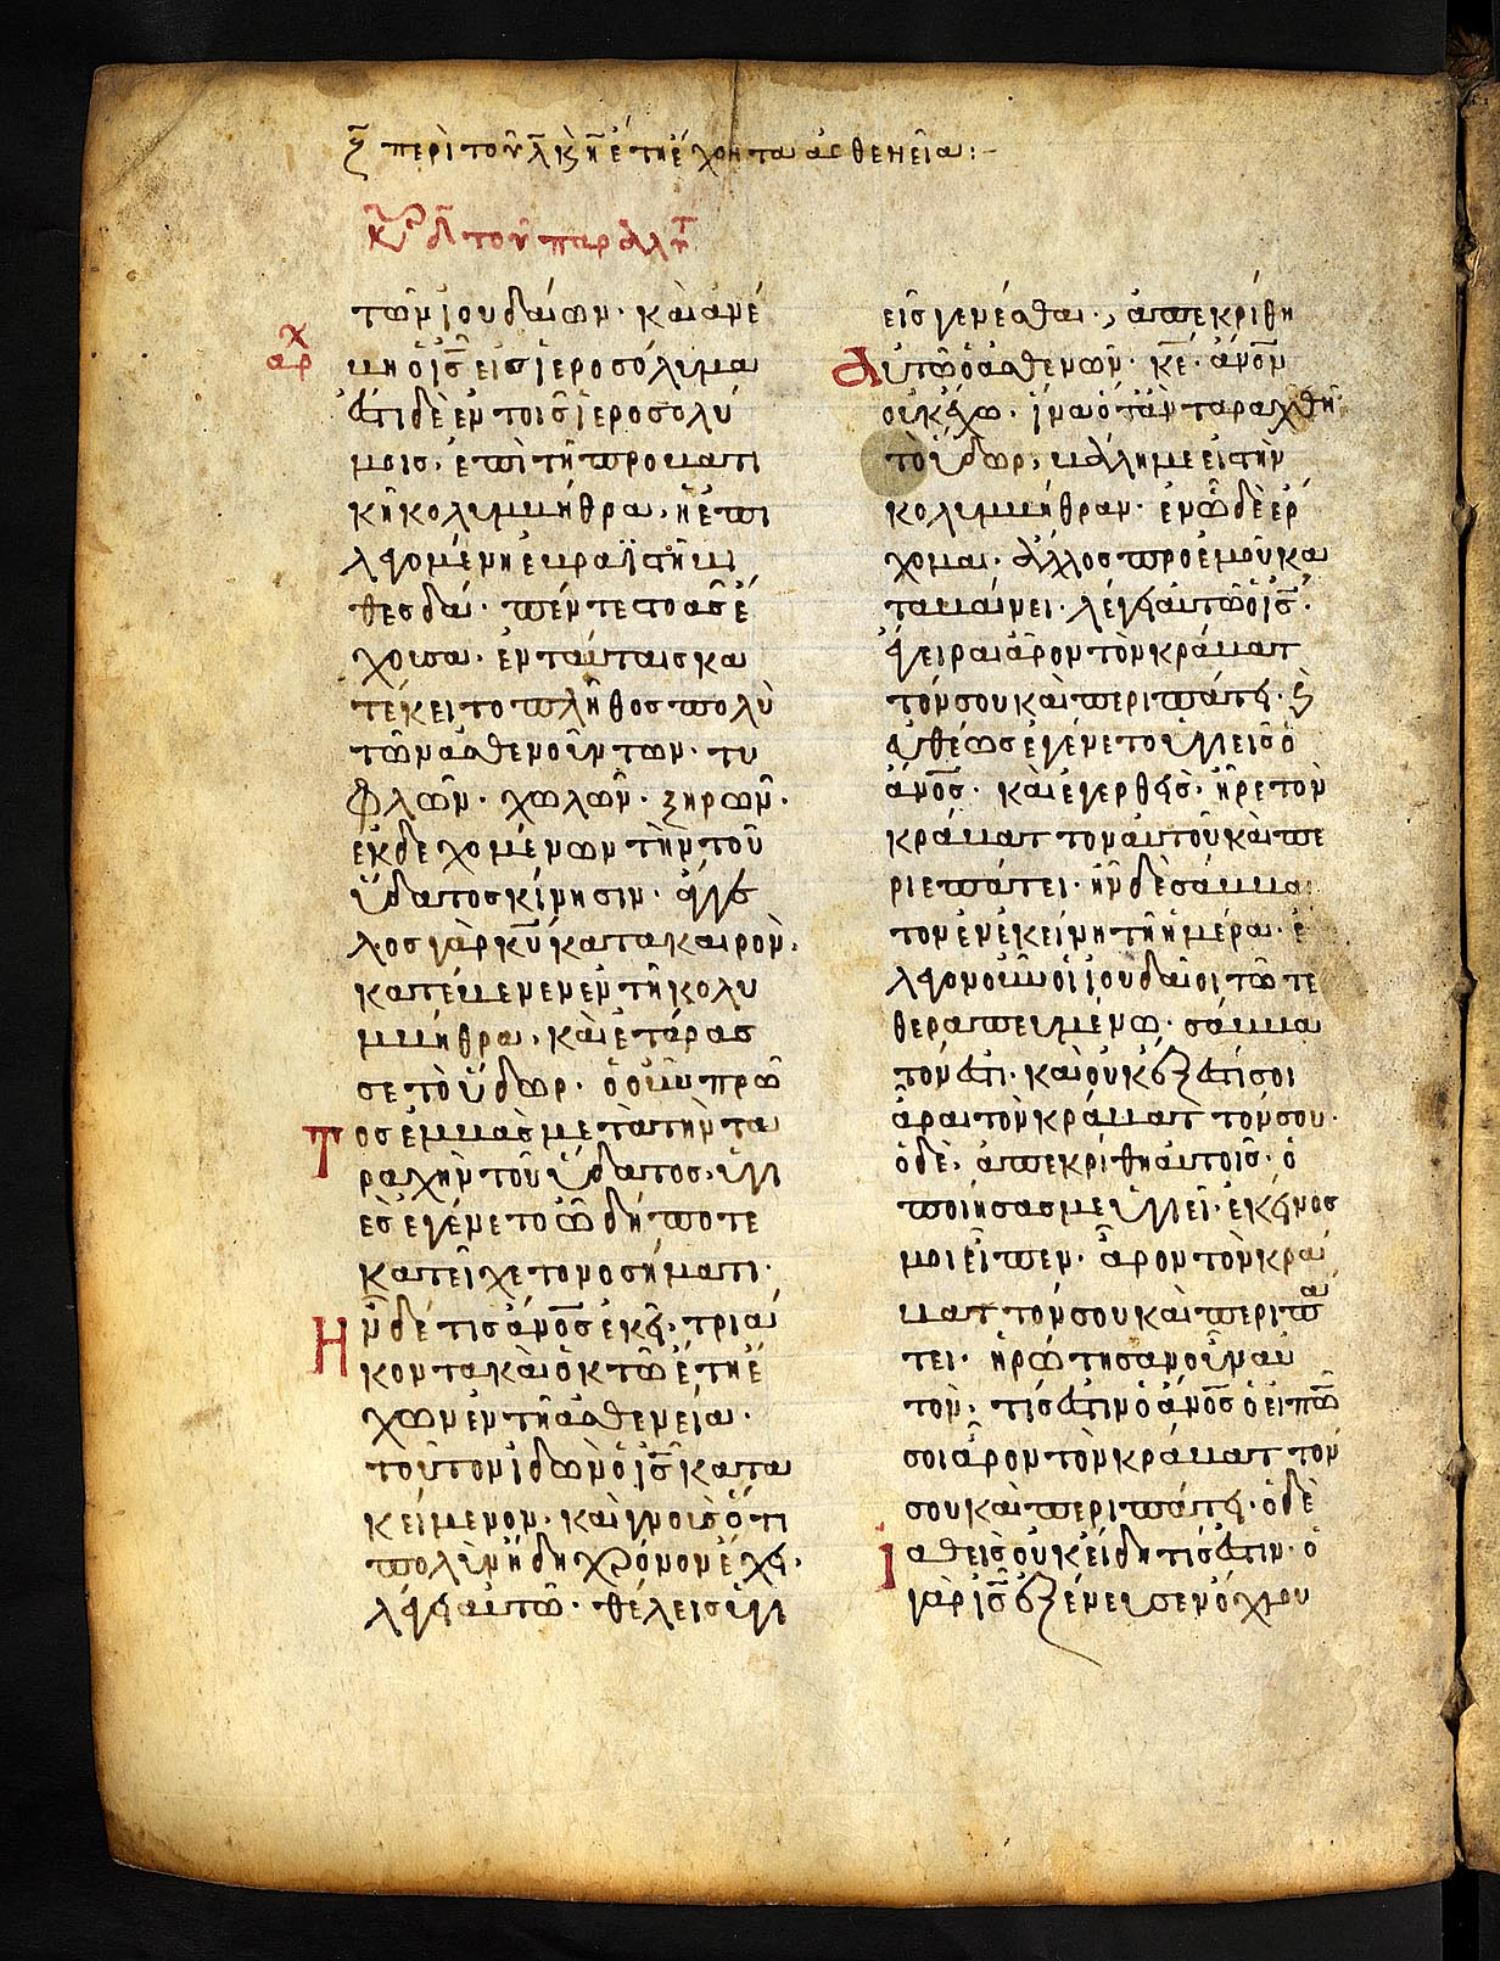 ζ̄ περὶ τοῦ λ̄ κ̀ η̄ ἔτη ἔχοντα ἀσθενεία:–
Κυ δ̄ τοῦ παραλύτ
τῶν ἰουδαίων· καὶ ἀνέ
αρχ
βη ὁ ἰς̅ εἰς ἱεροσόλυμα
ἔστι δὲ ἐν τοῖς ἱεροσολύ
μοις, ἐπὶ τῆ προβατι
κῆ κολυμβήθρα, ἡ ἐπι
λεγομένη ἑβραϊστὶ βι
θεσδά· πέντε στοὰς ἔ
χουσα· ἐν ταύταις κα
τέκειτο πλῆθος πολὺ
τῶν ἀσθενούντων· τυ
φλῶν· χωλῶν· ξηρῶν·
ἐκδεχομένων τὴν τοῦ
ὕδατος κίνησιν· ἄγγε
λος γὰρ κυ̅ κατα καιρὸν,
κατέβενεν ἐν τῆ κολυ
μβήθρα, καὶ ἐτάρασ
σε τὸ ὕδωρ· ὁ οὖν πρῶ
Τ
ος ἐμβὰς μετὰ τὴν τα
ραχὴν τοῦ ὕδατος, ὑγι
ὲς ἐγένετο ὧ δήποτε
κατείχετο νοσήματι·
Η
ν δέ τις ἄνος̅ ἐκεῖ· τριά
κοντα καὶ ὀκτὼ ἔτη ἔ
χων ἐν τῆ ἀσθενεία·
τοῦτον ἰδὼν ὁ ἰς̅ κατα
κείμενον· καὶ γνοὺς ὅτι
πολὺν ἤδη χρόνον ἔχει,
λέγει αὐτῶ· θέλεις ὑγι
εῖς γενέσθαι·, ἀπεκρίθη
Α
ὐτῶ ὁ ἀσθενῶν· κε̅· ἄνον̅
οὐκ ἔχω· ἵνα ὅταν ταραχθῆ
τὸ ὕδωρ, βάλη με εἰς τὴν
κολυμβήθραν· ἐν ὧ δὲ ἔρ
χομαι· ἄλλος πρὸ ἐμοῦ κα
ταβαίνει· λέγει αὐτῶ ὁ ἰς̅·
ἔγειραι ἆρον τὸν κράβατ
τόν σου καὶ περιπάτει· κ̀
εὐθέως ἐγένετο ὑγιεῖς ὁ
ἄνος̅· καὶ ἐγερθεὶς· ἦρε τὸν
κράβαττον αὐτοῦ καὶ πε
ριεπάτει· ἦν δὲ σάββα
τον ἐν ἐκείνη τῆ ἡμέρα· ἔ
λεγον οὖν οἱ ἰουδαῖοι τῶ τε
θεραπευμένω· σάββα
τόν ἐστι· καὶ οὐκ ἔξεστί σοι
ἆραι τὸν κράβαττόν σου·
ὁ δὲ, ἀπεκρίθη αὐτοῖς· ὁ
ποιήσας με ὑγιεῖ· ἐκεῖνος
μοι εἶπεν· ἆρον τὸν κρά
βαττόν σου καὶ περιπά
τει· ἠρώτησαν οὖν αὐ
τὸν, τίς ἐστιν ὁ ἄνος̅ ὁ εἰπῶ̅
σοι ἆρον τὸν κράβαττόν
σου καὶ περιπάτει· ὁ δὲ
Ι
αθεὶς οὐκ εἴδη τίς ἐστιν· ὁ
γὰρ ἰς̅ ἐξένευσεν ὄχλου